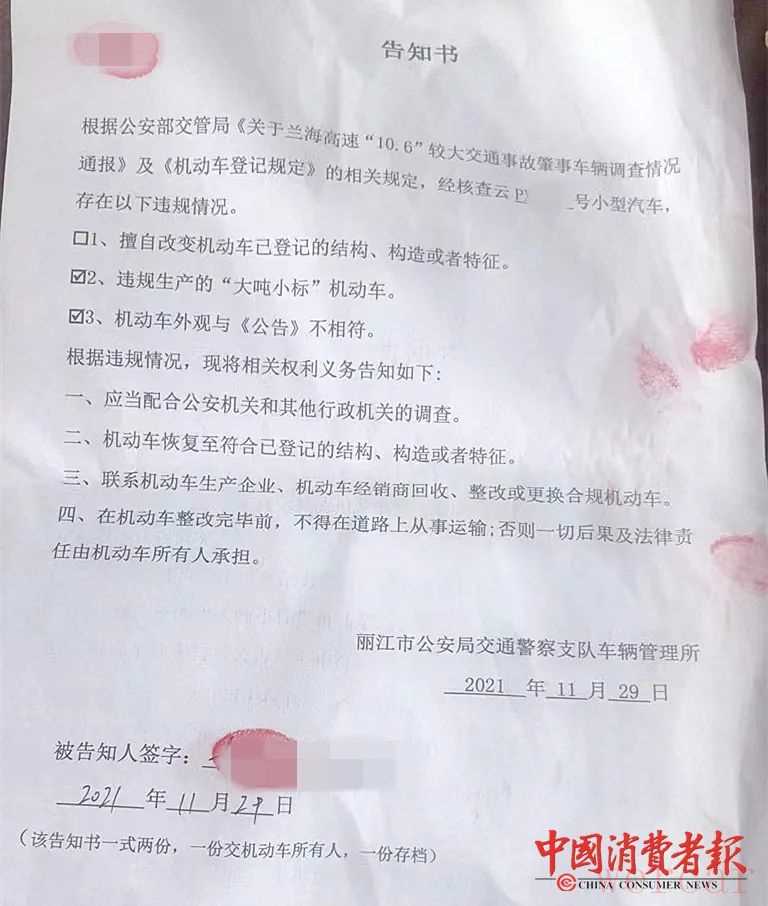 告知书
根据公安部交管局《关于兰海高速“10.6”较大交通事故肇事车辆调查情况
通报》及《机动车登记规定》的相关规定，经核查云P 号小型汽车，
存在以下违规情况。
☐1、擅自改变机动车已登记的结构、构造或者特征。
☑2、违规生产的“大吨小标”机动车。
☑3、机动车外观与《公告》不相符。
根据违规情况，现将相关权利义务告知如下:
一、应当配合公安机关和其他行政机关的调查。
二、机动车恢复至符合已登记的结构、构造或者特征。
三、联系机动车生产企业、机动车经销商回收、整改或更换合规机动车。
四、在机动车整改完毕前，不得在道路上从事运输;否则一切后果及法律责
任由机动车所有人承担。
丽江市公安局交通警察支队车辆管理所
2021 年 11 月 29 日
被告知人签字：
2021 年 11 月 29 日
（该告知书一式两份，一份交机动车所有人，一份存档）
中國消费者報
CHINA CONSUMER NEWS